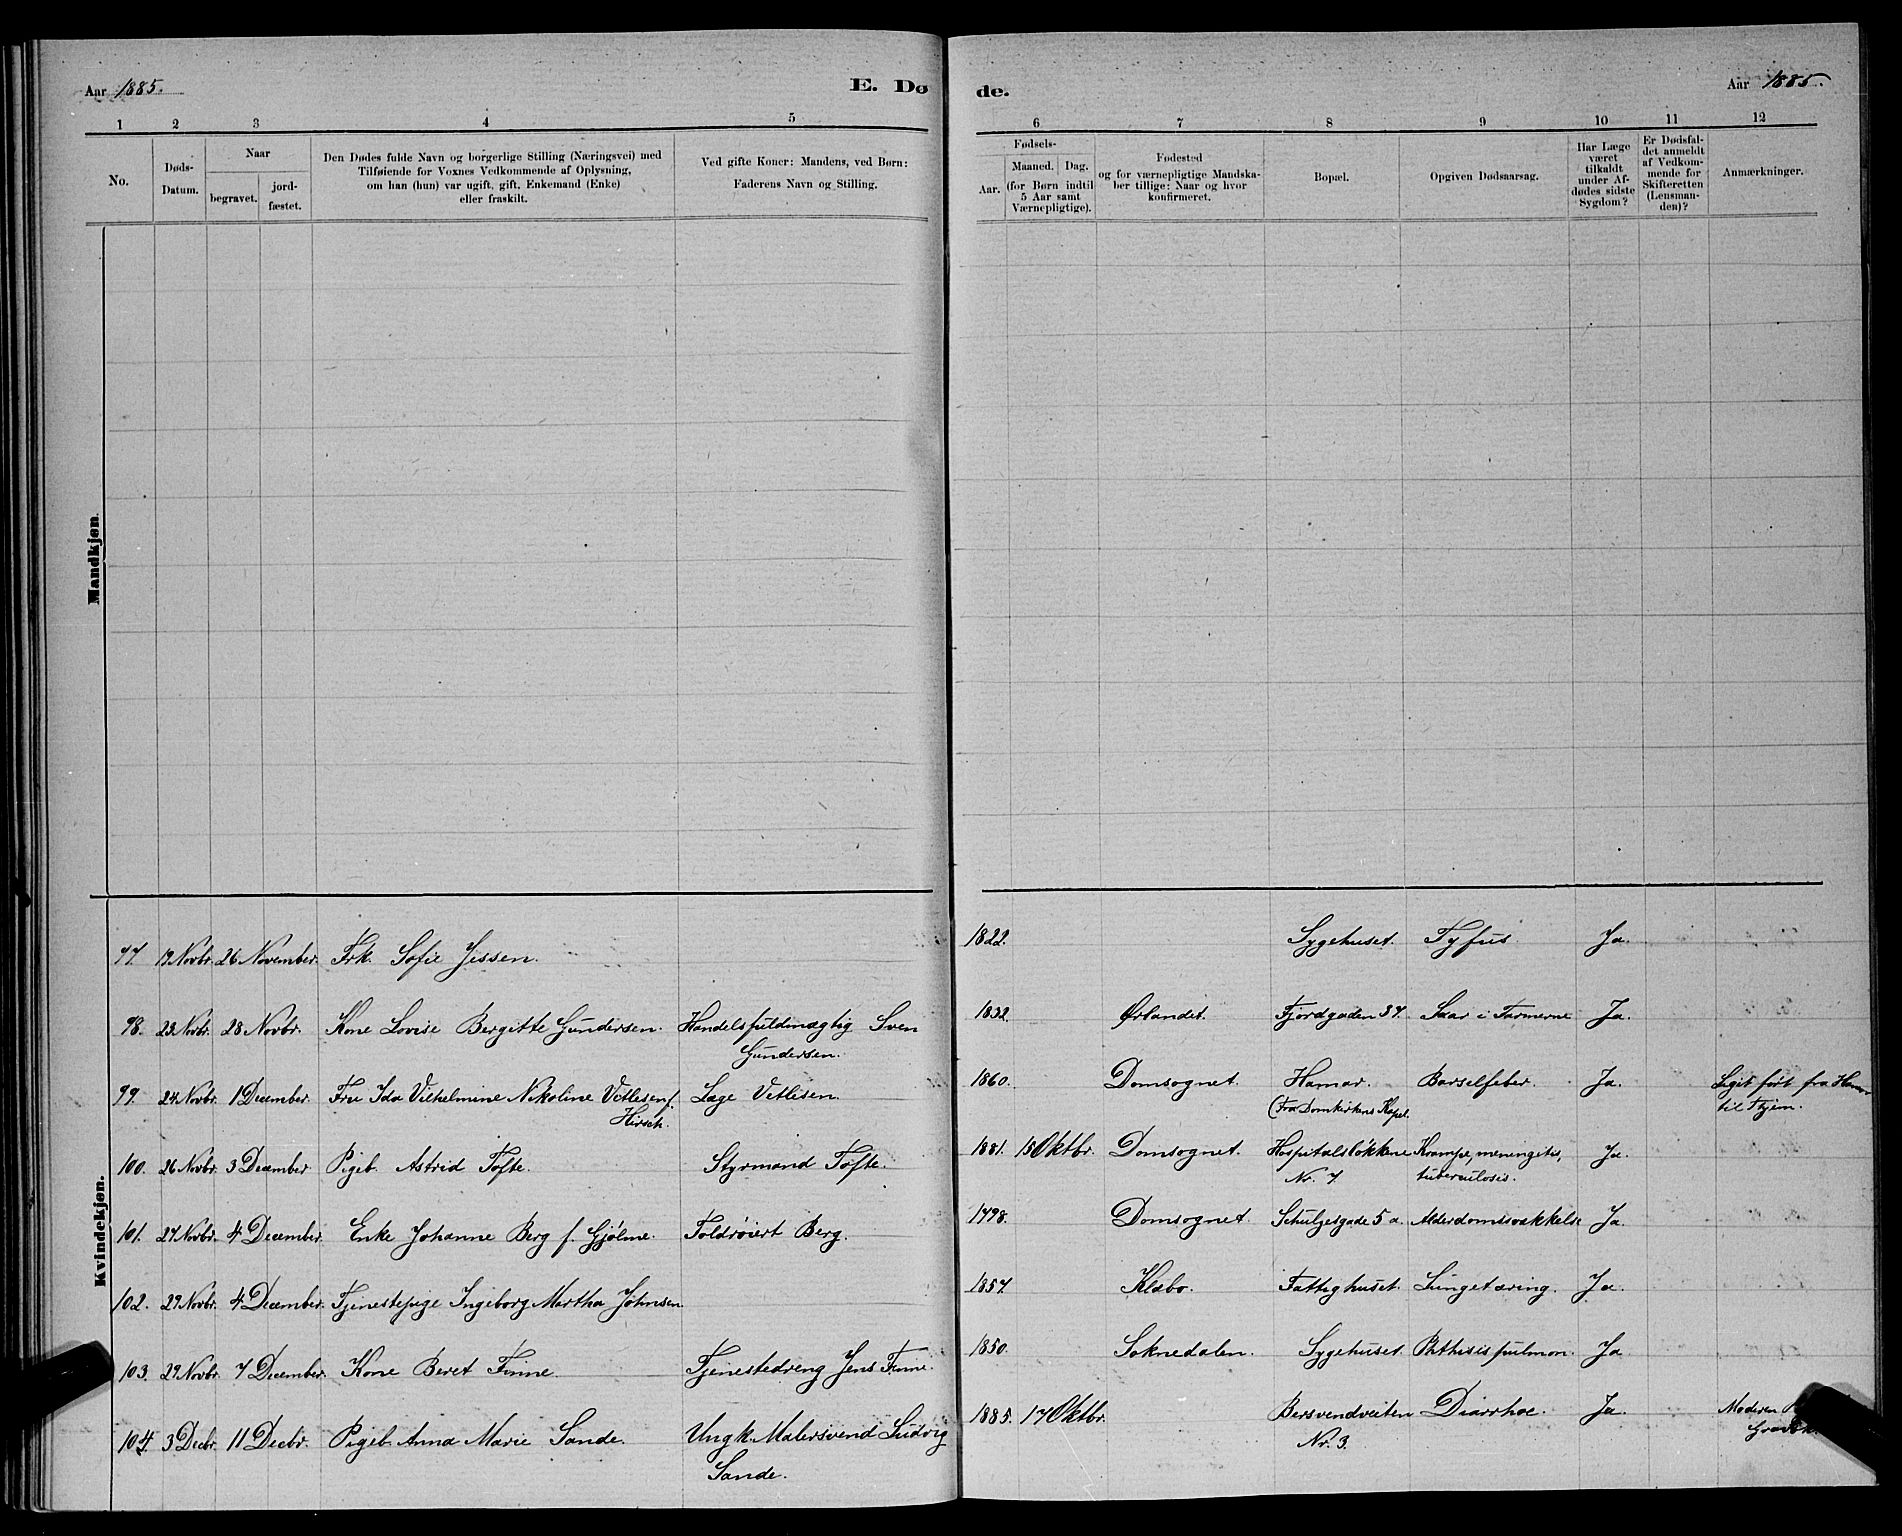 Aar 1885.
E. Dø
de.
Aar 1885.
1 2 3 4 5
6 7 8 9 10 11 12
No.
Døds-
Datum.
Naar
begravet.
jord-
fæstet.
Den Dødes fulde Navn og borgerlige Stilling (Næringsvei) med
Tilføiende for Voxnes Vedkommende af Oplysning,
om han (hun) var ugift, gift, Enkemand (Enke)
eller fraskilt.
Ved gifte Koner: Mandens, ved Børn:
Faderens Navn og Stilling.
Fødsels-
Aar.
Maaned. Dag.
(for Børn indtil
5 Aar samt
Værnepligtige).
Fødested
og for værnepligtige Mandska-
ber tillige: Naar og hvor
konfirmeret.
Bopæl.
Opgiven Dødsaarsag.
Har Læge
været
tilkaldt
under Af-
dødes sidste
Sygdom?
Er Dødsfal-
det anmeldt
af Vedkom-
mende for
Skifteretten
(Lensman-
den)?
Anmærkninger.
Mandkjøn.
Kvindekjøn.
97. 19 Novbr. 26 November. Frk. Sofie Jessen. 1822. Sygehuset. Tyfus. Ja.
98. 23 Novbr. 28 Novbr. Kone Lovise Bergitte Gundersen. Handelsfuldmægtig Sven 1832. Ørlandet. Fjordgaden 37. Saar i Tarmerne Ja.
Gundersen.
99. 24 Novbr. 1 December. Fru Ida Vilhelmine Nikoline Vetlesen f. Læge Vetlesen. 1860. Domsognet. Hamar. Barselfeber. Ja. Liget ført fra Hamar
Hirsch. (Fra Domkirkens Kapel. til Thjem.
100. 26 Novbr. 3 December Pigeb. Astrid Tofte. Styrmand Tofte. 1881. 15 Oktbr. Domsognet. Hospitalsløkkene Krampe, menengitis, Ja.
Nr. 7 tuberculosis.
101. 27 Novbr. 4 December. Enke Johanne Berg f. Gjølme. Toldrøiert Berg. 1798. Domsognet. Schulzesgade 5 a. Alderdomssvakkelse Ja.
102. 29 Novbr. 4 December. Tjenestepige Ingeborg Martha Johnsen 1857. Klæbo. Fattighuset. Lungetæring. Ja.
103. 29 Novbr. 7 December. Kone Beret Finne. Tjenestedreng Jens Finne. 1850. Soknedalen. Sygehuset. Phthisis pulmon. Ja
104. 3 Decbr. 11 Decbr. Pigeb. Anna Marie Sande. Ungk. Malersvend Ludvig 1885. 17 Oktbr. Bersvendveiten Diarrhoe. Ja. Moderen
Sande. Nr. 3.